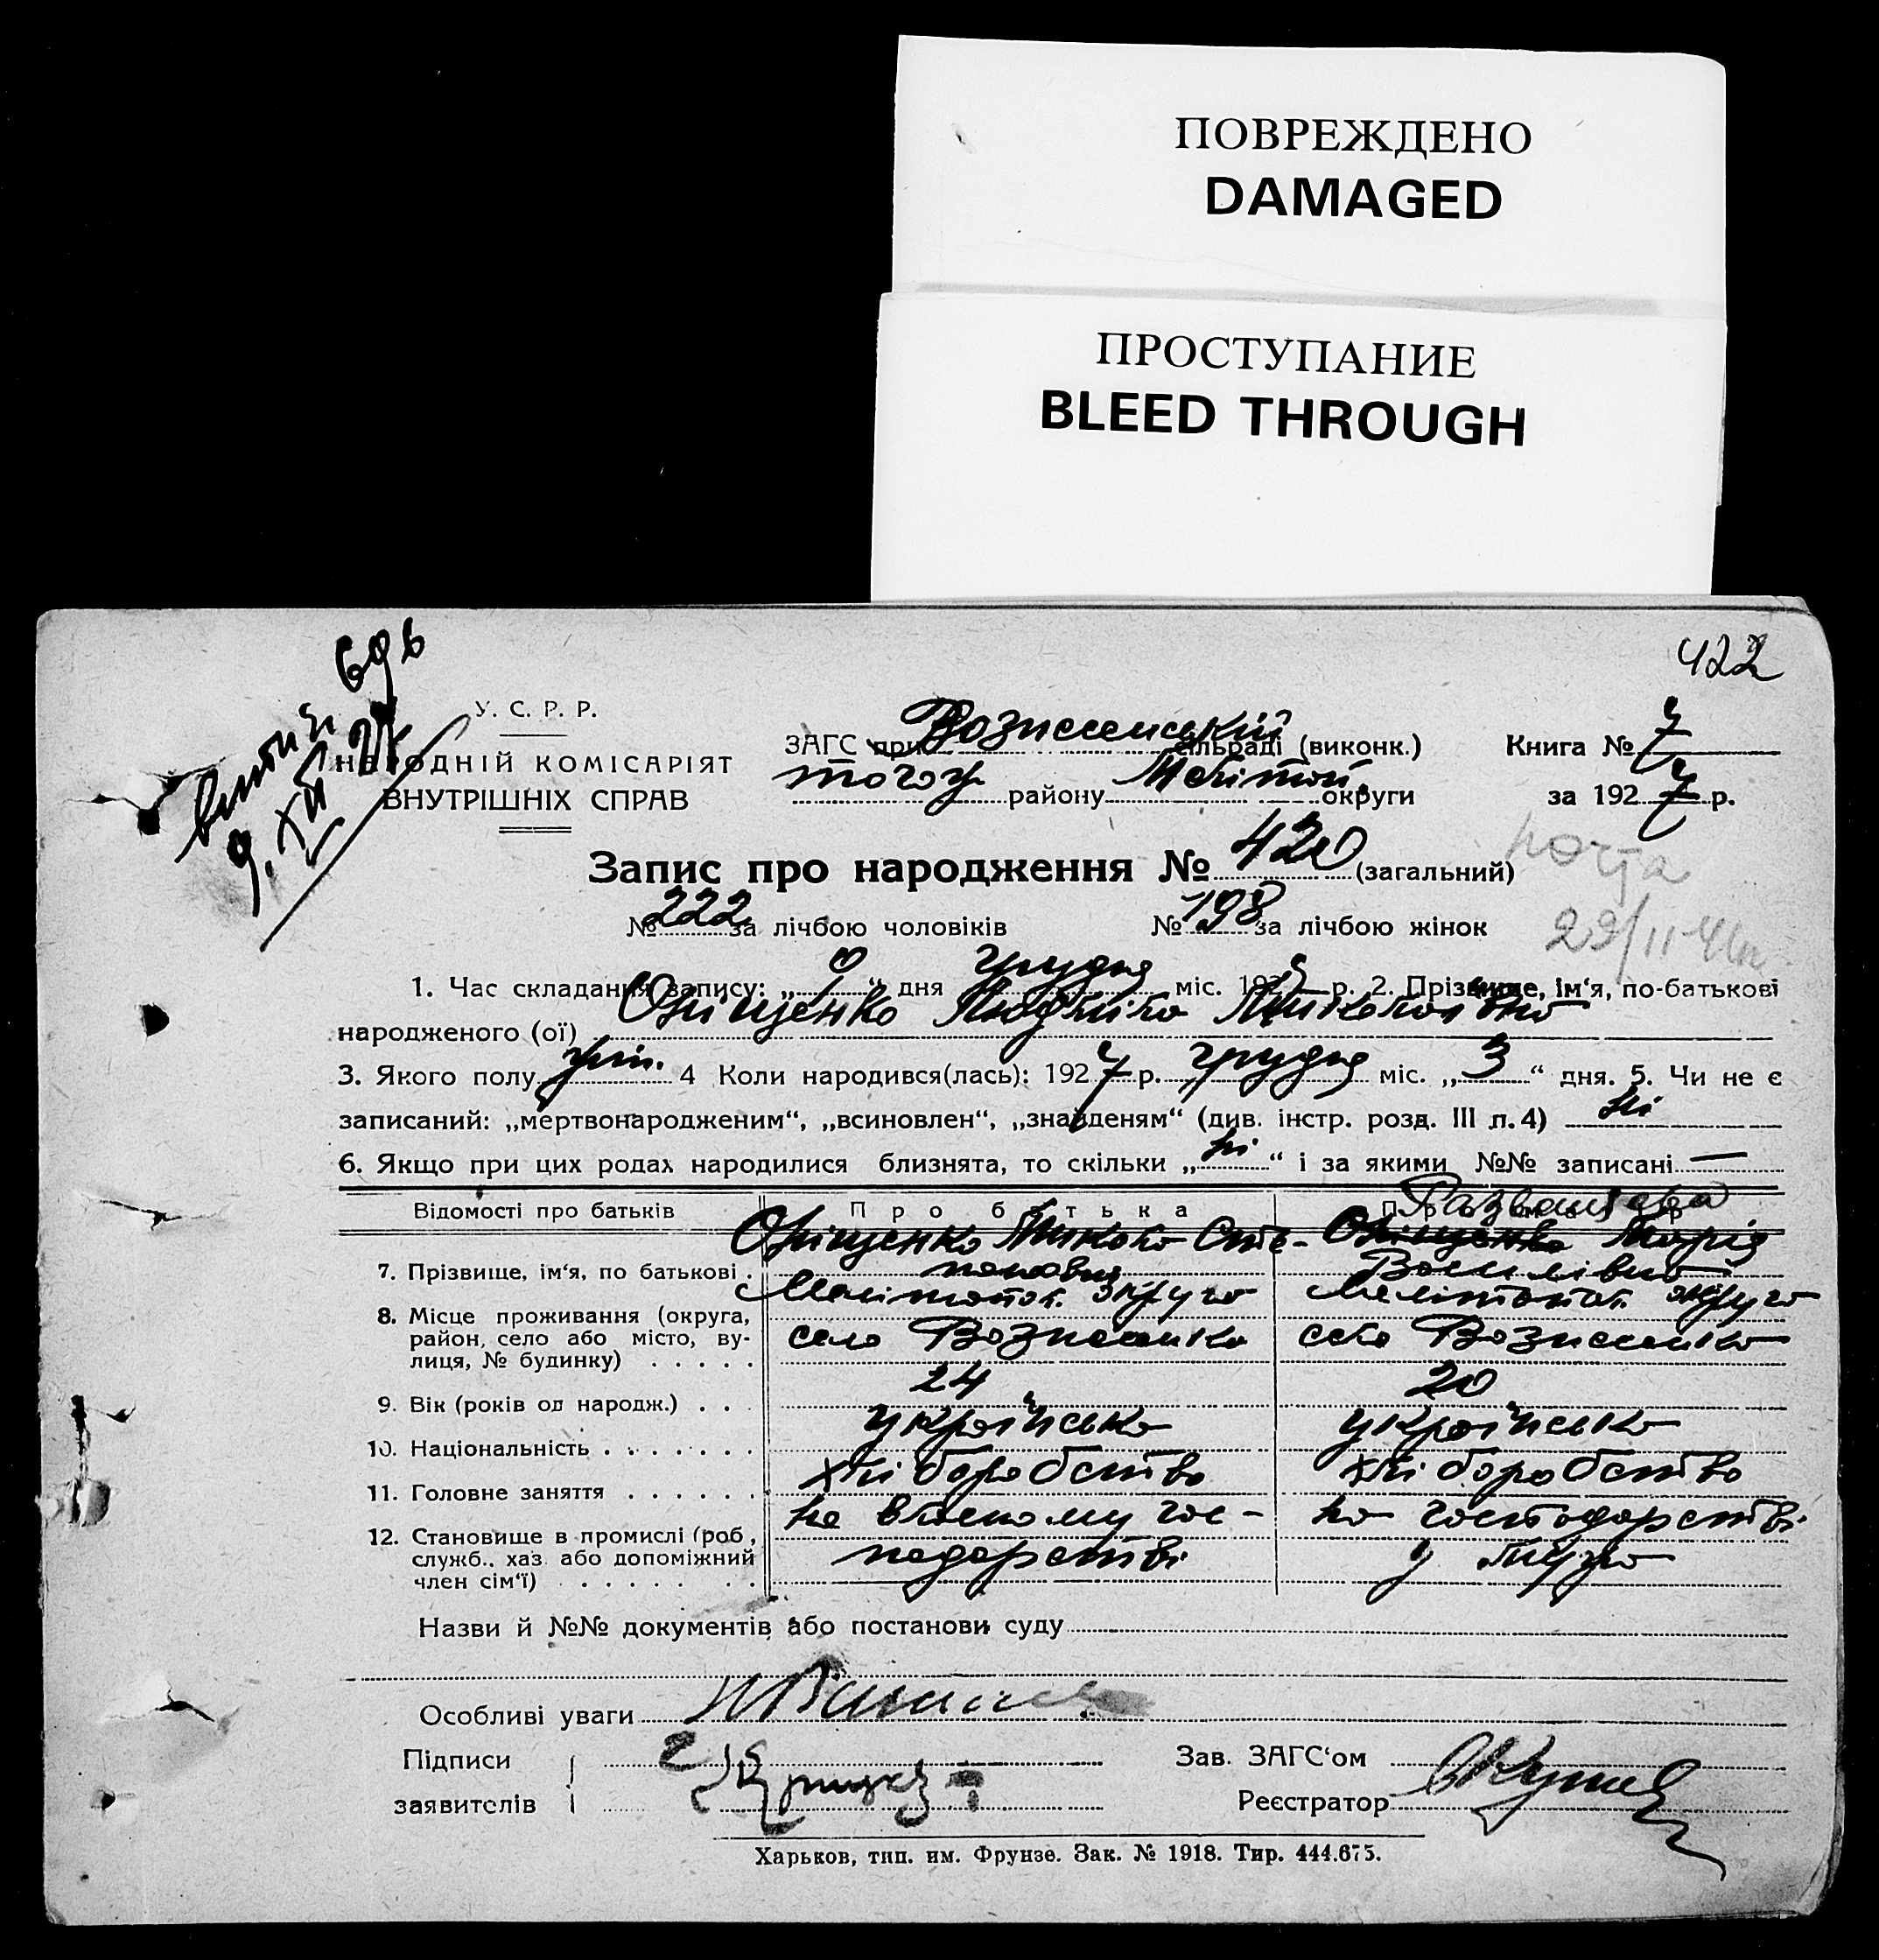 ПОВРЕЖДЕНО
DAMAGED
ПРОСТУПАНИЕ
BLEED THROUGH
422
У. С. Р. Р.
НАРОДНІЙ КОМІСАРІЯТ
ВНУТРІШНІХ СПРАВ
9. XII 27
ЗАГС при Вознесенській сільраді (виконк.) Книга № 7
того ж району Мелітоп. округи за 1927 р.
Запис про народження № 420 (загальний)
почта
№ 222 за лічбою чоловіків № 198 за лічбою жінок
29/11-44
1. Час складання запису: „9“ дня грудня міс. 1927 р. 2. Прізвище, ім‘я, по-батькові
народженого (ої) Оніщенко Миколаївна
3. Якого полу жін. 4 Коли народився(лась): 1927 р. грудня міс. „3“ дня. 5. Чи не є
записаний: „мертвонародженим“, „всиновлен“, „знайденям“ (див. інстр. розд. III п. 4) ні
6. Якщо при цих родах народилися близнята, то скільки „ні“ і за якими №№ записані —
Відомості про батьків Про батька Про матір
7. Прізвище, ім‘я, по батькові Оніщенко Микола Сте-
панович
Оніщенко Марія
Василівна
8. Місце проживання (округа, район, село або місто, вулиця, № будинку) Мелітопол. округа
село Вознесенка
Мелітопол. округа
село Вознесенка
9. Вік (років од народж.) 24 20
10. Національність українська українська
11. Головне заняття хліборобство хліборобство
12. Становище в промислі (роб, служб., хаз або допоміжний член сім‘ї) на власному гос-
подарстві
на господарстві
у мужа
Назви й №№ документів або постанови суду
Особливі уваги
Підписи
заявителів
Зав. ЗАГС‘ом
Реєстратор
Харьков, тип. им. Фрунзе. Зак. № 1918. Тир. 444.675.